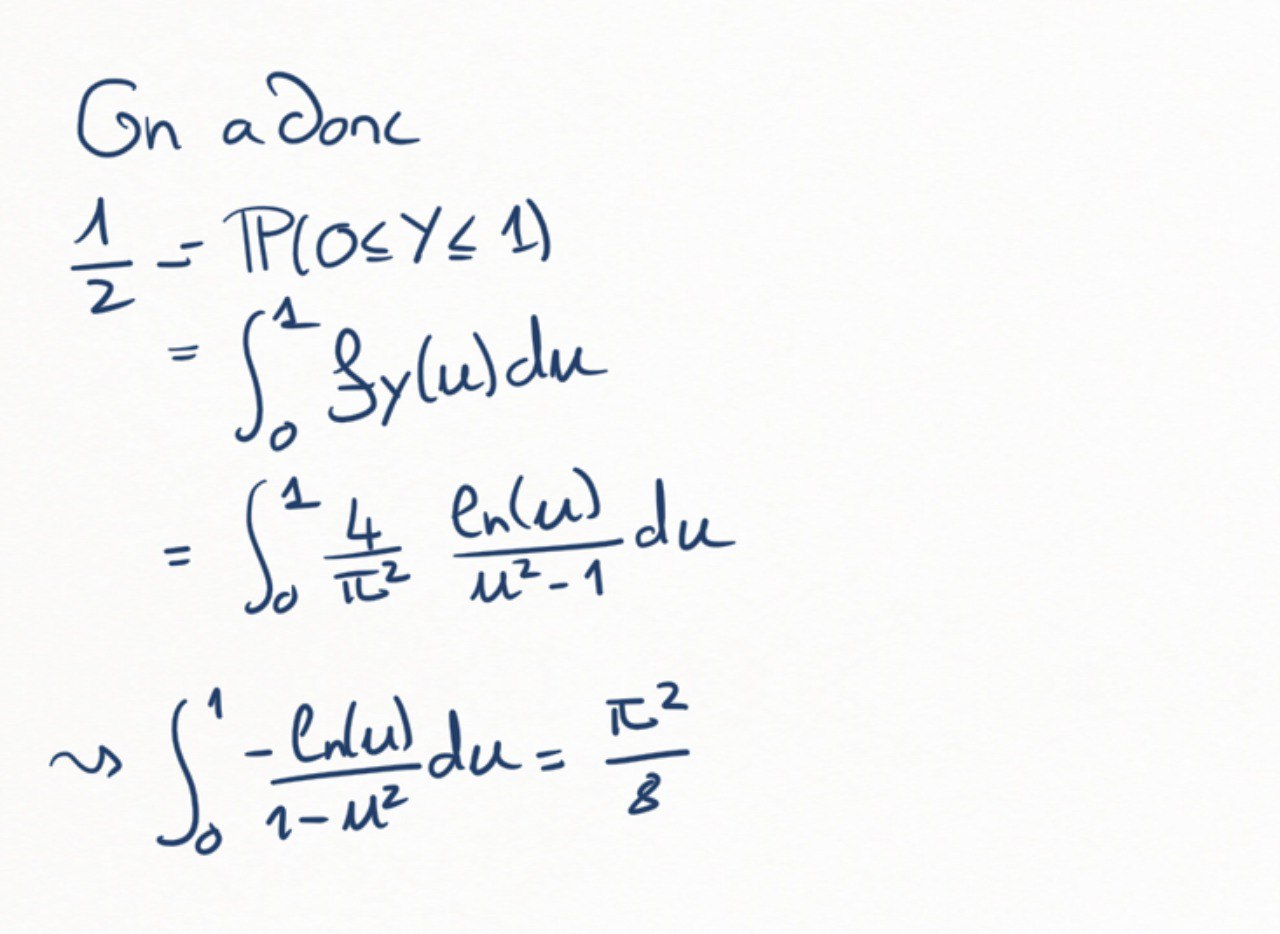 On a donc
1/2 = ℙ(0 ≤ Y ≤ 1)
= ∫₀¹ f_Y(u) du
= ∫₀¹ 4/π² ln(u)/(u² - 1) du
⇝ ∫₀¹ -ln(u)/(1 - u²) du = π²/8